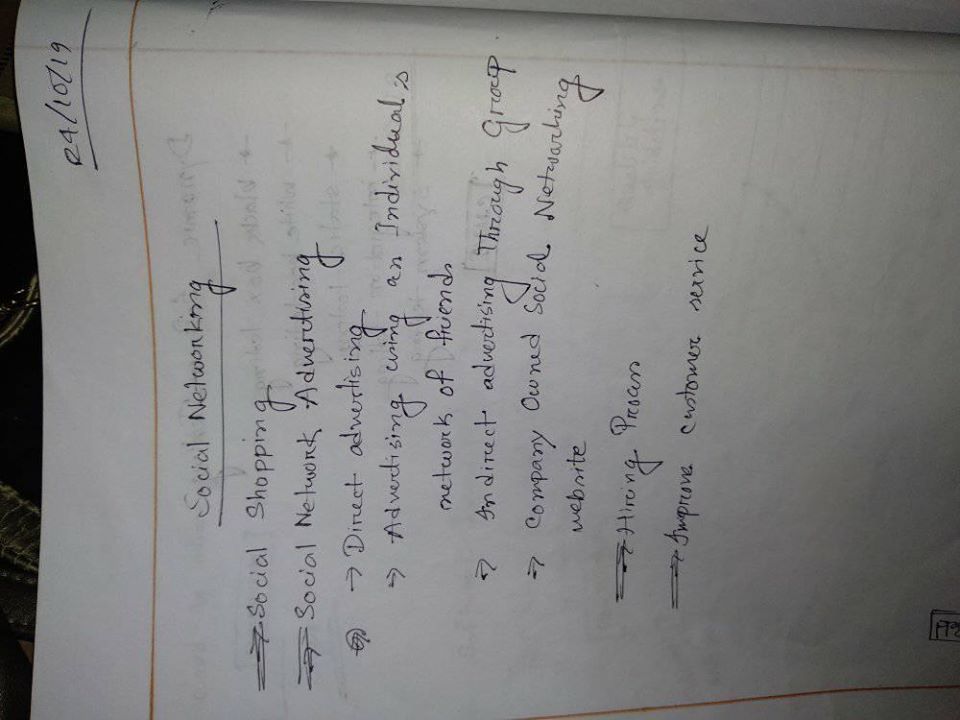 24/10/19
Social Networking
⇒ Social Shopping
⇒ Social Network Advertising
→ Direct advertising
→ Advertising using an Individual's
network of friends
→ Indirect advertising Through Group
→ Company Owned Social Networking
website
⇒ Hiring Process
⇒ Improve customer service